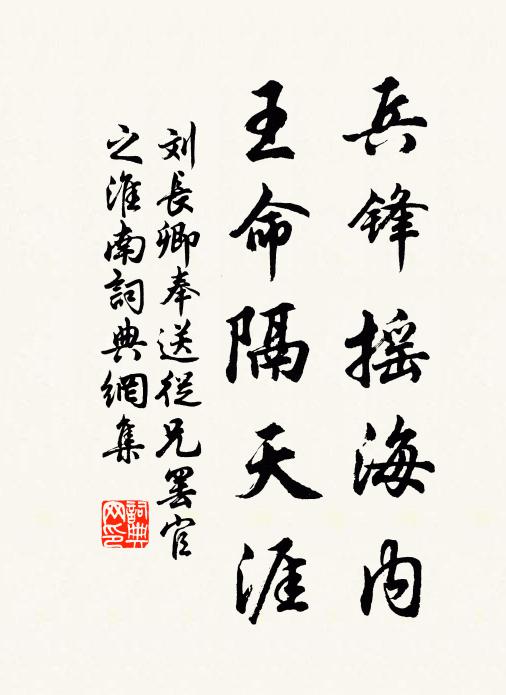 兵锋摇海内
王命隔天涯
刘長卿奉送從兄罢官
之淮南詞典網集
詞典网印